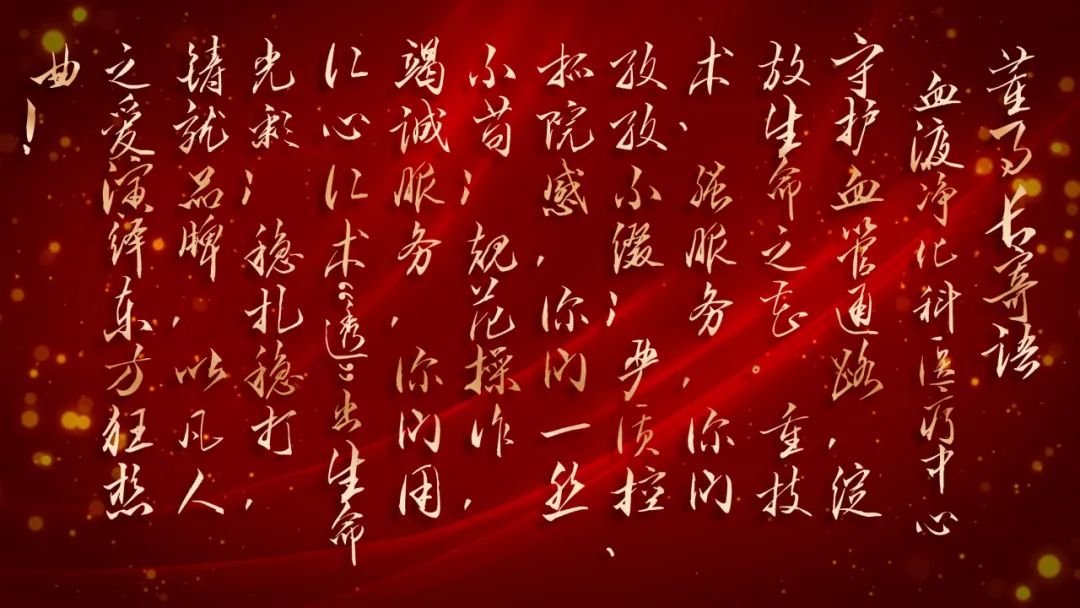 董事长寄语
血液净化科医疗中心
守护血管通路，绽
放生命之花。重技
术、强服务，你们
孜孜不倦；严质控、
抓院感，你们一丝
不苟；规范操作，
竭诚服务，你们用
仁心仁术“透”出生命
光彩；稳扎稳打，
铸就品牌，以凡人
之爱演绎东方狂想
曲！